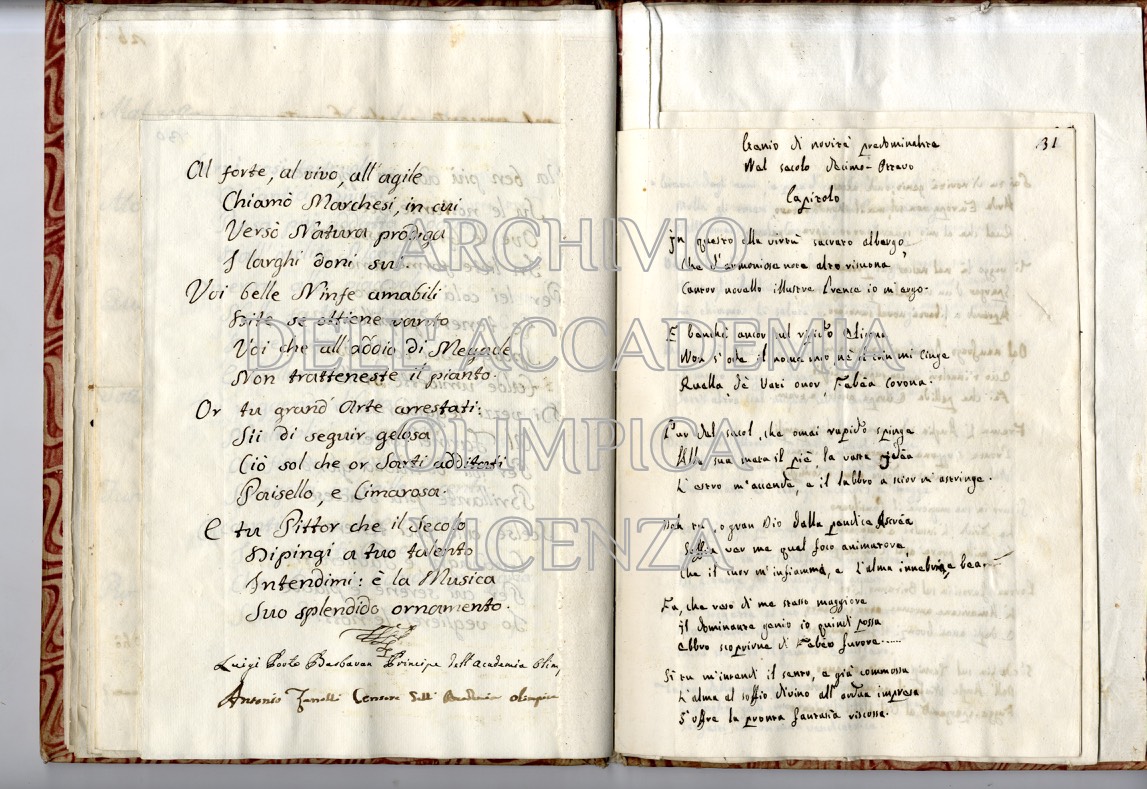 Al forte, al vivo, all'agile
Chiamò Marchesi, in cui
Versò Natura prodiga
I larghi doni sui.
Voi belle Ninfe amabili
Dite se ottiene vanto
Voi che all'addio di Megacle
Non tratteneste il pianto.
Or tu grand'Arte arrestati:
Sii di seguir gelosa
Ciò sol che or Sarti additati
Paisello, e Cimarosa.
E tu Pittor che il Secolo
Dipingi a tuo talento
Intendimi: è la Musica
Suo splendido ornamento.
Luigi Porto Barbaran Principe dell'Academia Olim
Antonio Censore dell' Accademia olimpica
31
Genio di novità predominante
Nel secolo decimo-ottavo
Capitolo
In questo alla virtù sacrato albergo
Che d'armoniose note altro risuona,
Cantor novello illustre Prence io m'ergo.
E benchè ancor sul
Non s'ode il nome mio nè il crin mi cinge
Quella de' Vati onor, Febèa corona.
Pur del secol, che omai rapido spinge
Alla sua meta il piè, la vasta idea
L'estro m'accende, e il labbro a scior m'astringe.
Deh tu, o gran Dio della pendice Ascrèa
Soffia ver me quel foco animatore
Che il cuor m'infiamma, e l'alma innebria, e bea.
Fa, che reso di me stesso maggiore
Il dominante genio io quindi possa
Ebbro scoprirne di Febèo furore.....
Sì tu m'intendi il sento, e già commossa
L'alma al soffio divino all'ardua impresa
S'offre la pronta fantasia riscossa.
ARCHIVIO
DELL'ACCADEMIA
OLIMPICA
VICENZA